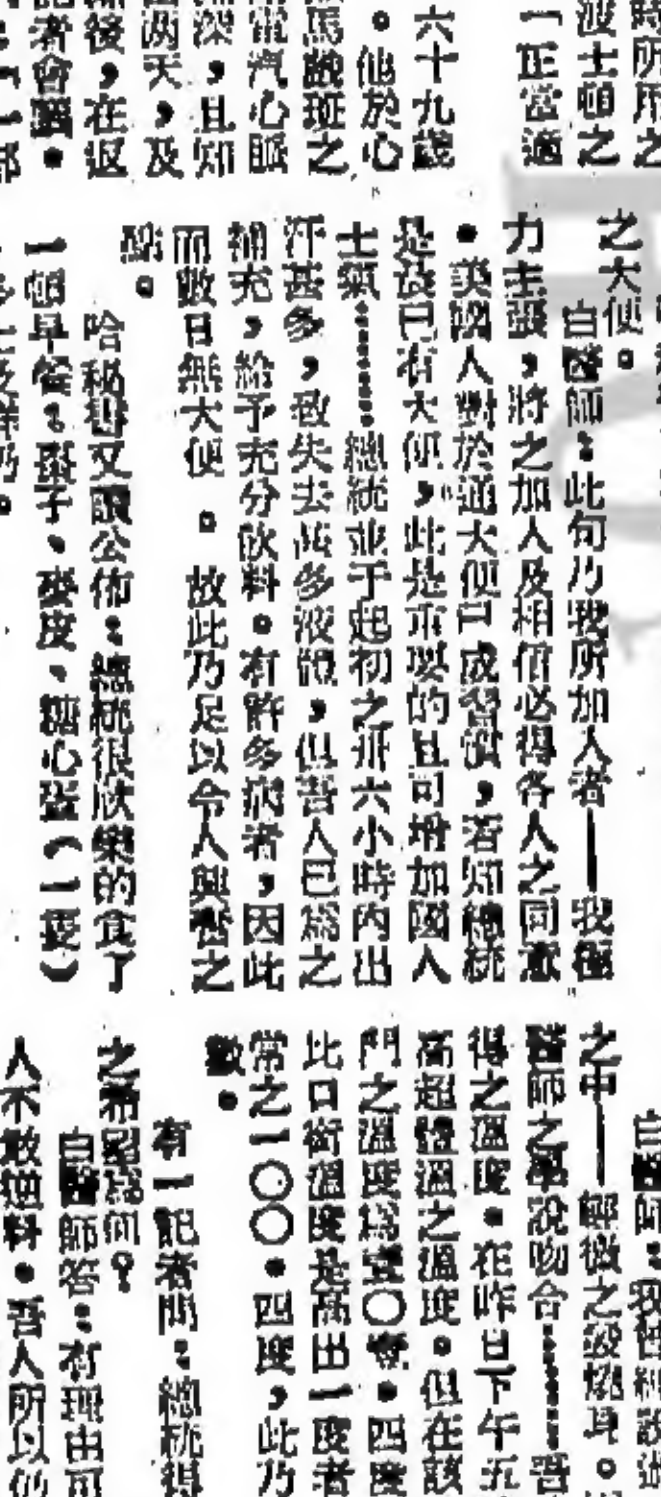 時所用之
波士頓之
一正當適
六十九歲
。他於心
馬醎斑之
電汽心賑
深,且知
兩天,及
後,在返
者會議。
一部
之大便。
白醫師:此句乃我所加入者——我極
力主張,將之加入及相信必得各人之同意
。美國人對於通大便已成習慣,若知總統
是後已有大便,此是重要的且可增加國人
士氣………總統並于起初之卅六小時內出
汗甚多,致失去甚多液體,但吾人已為之
補充,給予充分飲料。有許多病者,因此
而數日無大便。故此乃足以令人興奮之
點。
哈秘書又讀公佈:總統很欣樂的食了
一頓早餐:棗子、麥皮、糖心蛋(一隻)
白醫師:我曾經說過
之中——輕微之發燒耳。
醫師之學說吻合………吾
得之溫度。在昨日下午五
高超體溫之溫度。但在該
門之溫度為壹〇壹。四度
比口銜溫度是高出一度者
常之一〇〇。四度,此乃
數。
有一記者問:總統得
之希望為何?
白醫師答:有理由可
人不敢逆料。吾人所以仍